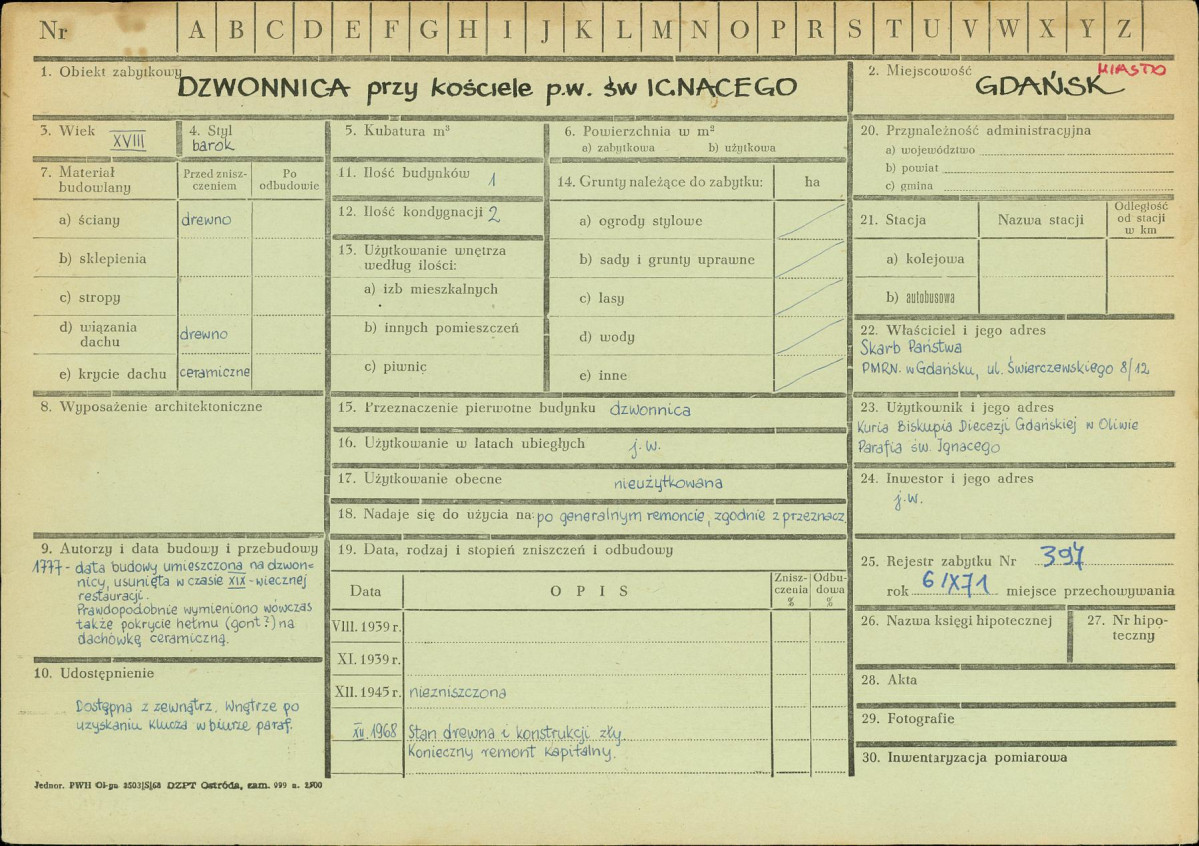 Nr A B C D E F G H I J K L M N O P R S T U V W X Y Z
1. Obiekt zabytkowy DZWONNICA przy kościele p.w. św IGNACEGO
2. Miejscowość GDAŃSK MIASTO
3. Wiek XVIII
4. Styl barok
5. Kubatura m³
6. Powierzchnia w m²
a) zabytkowa b) użytkowa
7. Materiał budowlany
Przed zniszczeniem
Po odbudowie
a) ściany drewno
b) sklepienia
c) stropy
d) wiązania dachu drewno
e) krycie dachu ceramiczne
8. Wyposażenie architektoniczne
9. Autorzy i data budowy i przebudowy
1777 - data budowy umieszczona na dzwon=
nicy, usunięta w czasie XIX-wiecznej
restauracji.
Prawdopodobnie wymieniono wówczas
także pokrycie hełmu (gont?) na
dachówkę ceramiczną.
10. Udostępnienie
Dostępna z zewnątrz. Wnętrze po
uzyskaniu klucza w biurze paraf.
11. Ilość budynków 1
12. Ilość kondygnacji 2
13. Użytkowanie wnętrza
według ilości:
a) izb mieszkalnych
b) innych pomieszczeń
c) piwnic
14. Grunty należące do zabytku: ha
a) ogrody stylowe
b) sady i grunty uprawne
c) lasy
d) wody
e) inne
15. Przeznaczenie pierwotne budynku dzwonnica
16. Użytkowanie w latach ubiegłych j.w.
17. Użytkowanie obecne nieużytkowana
18. Nadaje się do użycia na: po generalnym remoncie, zgodnie z przeznacz.
19. Data, rodzaj i stopień zniszczeń i odbudowy
Data OPIS Zniszczenia % Odbudowa %
VIII. 1939 r.
XI. 1939 r.
XII. 1945 r. niezniszczona
XII. 1968 Stan drewna i konstrukcji zły.
Konieczny remont kapitalny.
20. Przynależność administracyjna
a) województwo
b) powiat
c) gmina
21. Stacja Nazwa stacji
Odległość
od stacji
w km
a) kolejowa
b) autobusowa
22. Właściciel i jego adres
Skarb Państwa
PMRN. w Gdańsku, ul. Świerczewskiego 8/12
23. Użytkownik i jego adres
Kuria Biskupia Diecezji Gdańskiej w Oliwie
Parafia św. Ignacego
24. Inwestor i jego adres
j.w.
25. Rejestr zabytku Nr 397
rok 6/X71 miejsce przechowywania
26. Nazwa księgi hipotecznej
27. Nr hipo-
teczny
28. Akta
29. Fotografie
30. Inwentaryzacja pomiarowa
Jednor. PWH Ol-pn 3503|S|68 DZPT Ostróda, zam. 099 n.